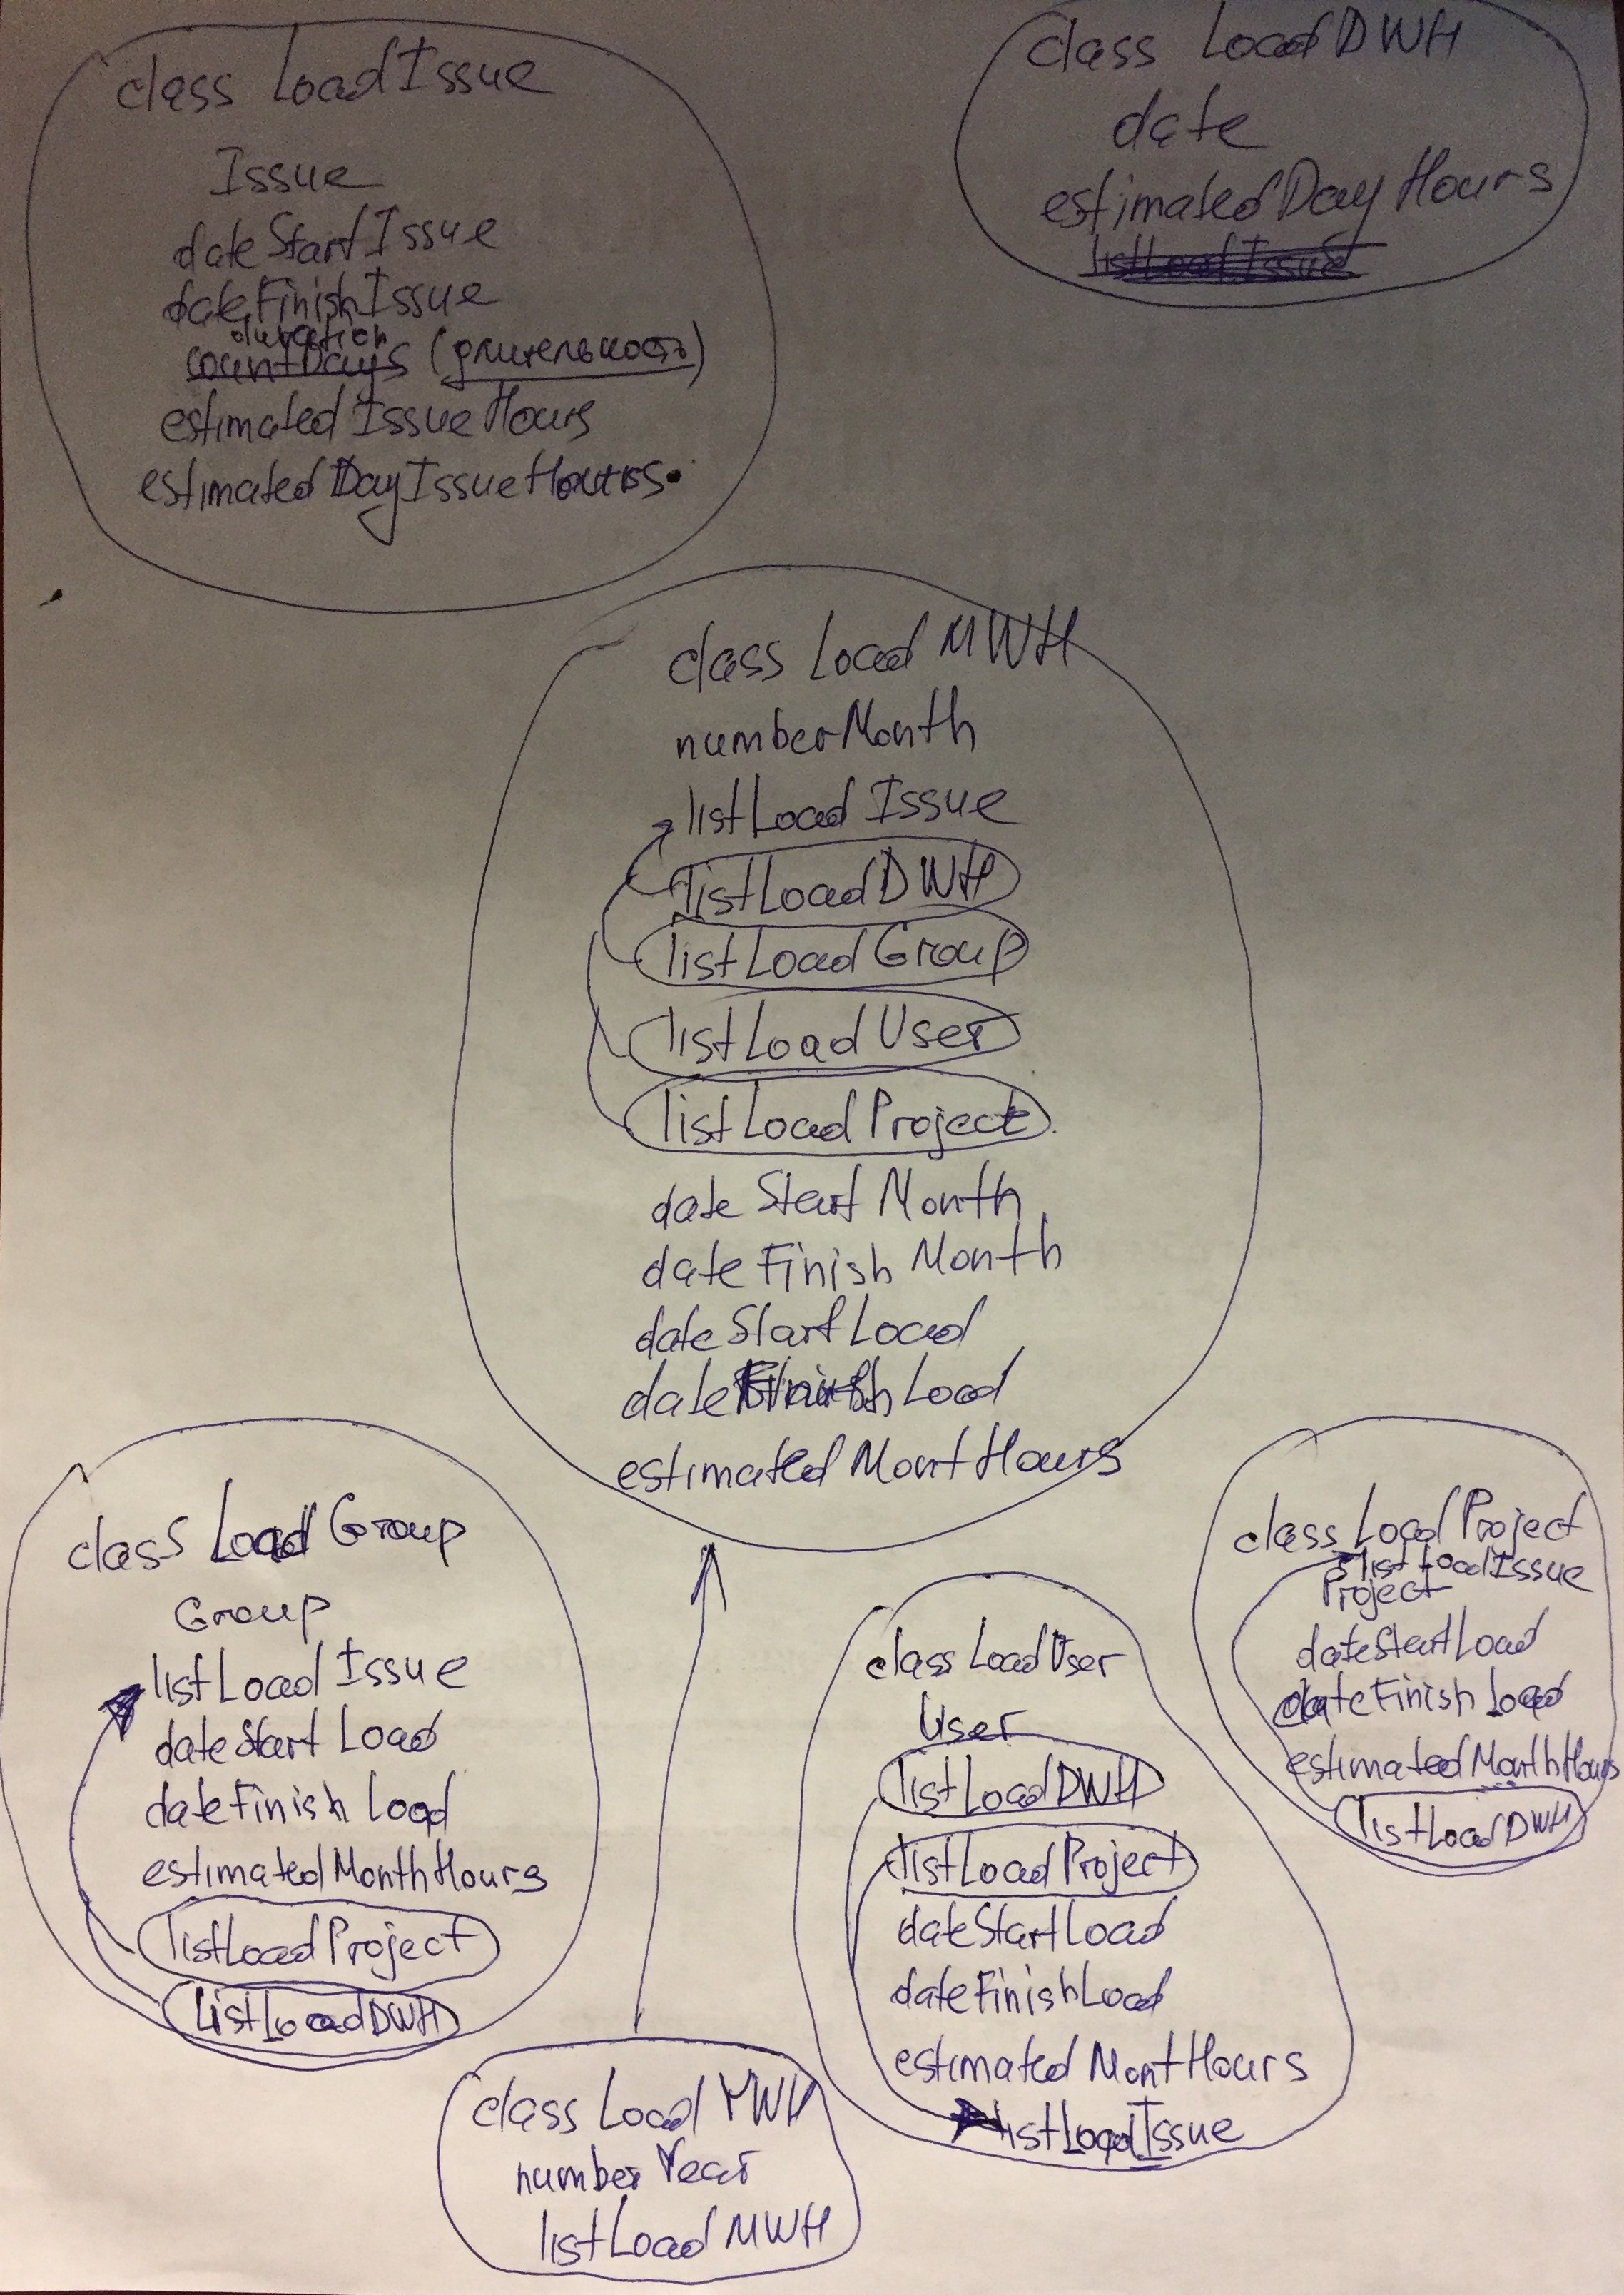 class LoadIssue
Issue
dateStartIssue
dateFinishIssue
duration
countDays (длительность)
estimatedIssueHours
estimatedDayIssueHours
class LoadDWH
date
estimatedDayHours
listLoadIssue
class LoadMWH
numberMonth
listLoadIssue
listLoadDWH
listLoadGroup
listLoadUser
listLoadProject
dateStartMonth
dateFinishMonth
dateStartLoad
dateFinishLoad
estimatedMontHours
class LoadGroup
Group
listLoadIssue
dateStartLoad
dateFinishLoad
estimatedMonthHours
listLoadProject
listLoadDWH
class LoadYWH
numberYear
listLoadMWH
class LoadUser
User
listLoadDWH
listLoadProject
dateStartLoad
dateFinishLoad
estimatedMontHours
listLoadIssue
class LoadProject
listLoadIssue
Project
dateStartLoad
dateFinishLoad
estimatedMonthHours
listLoadDWH